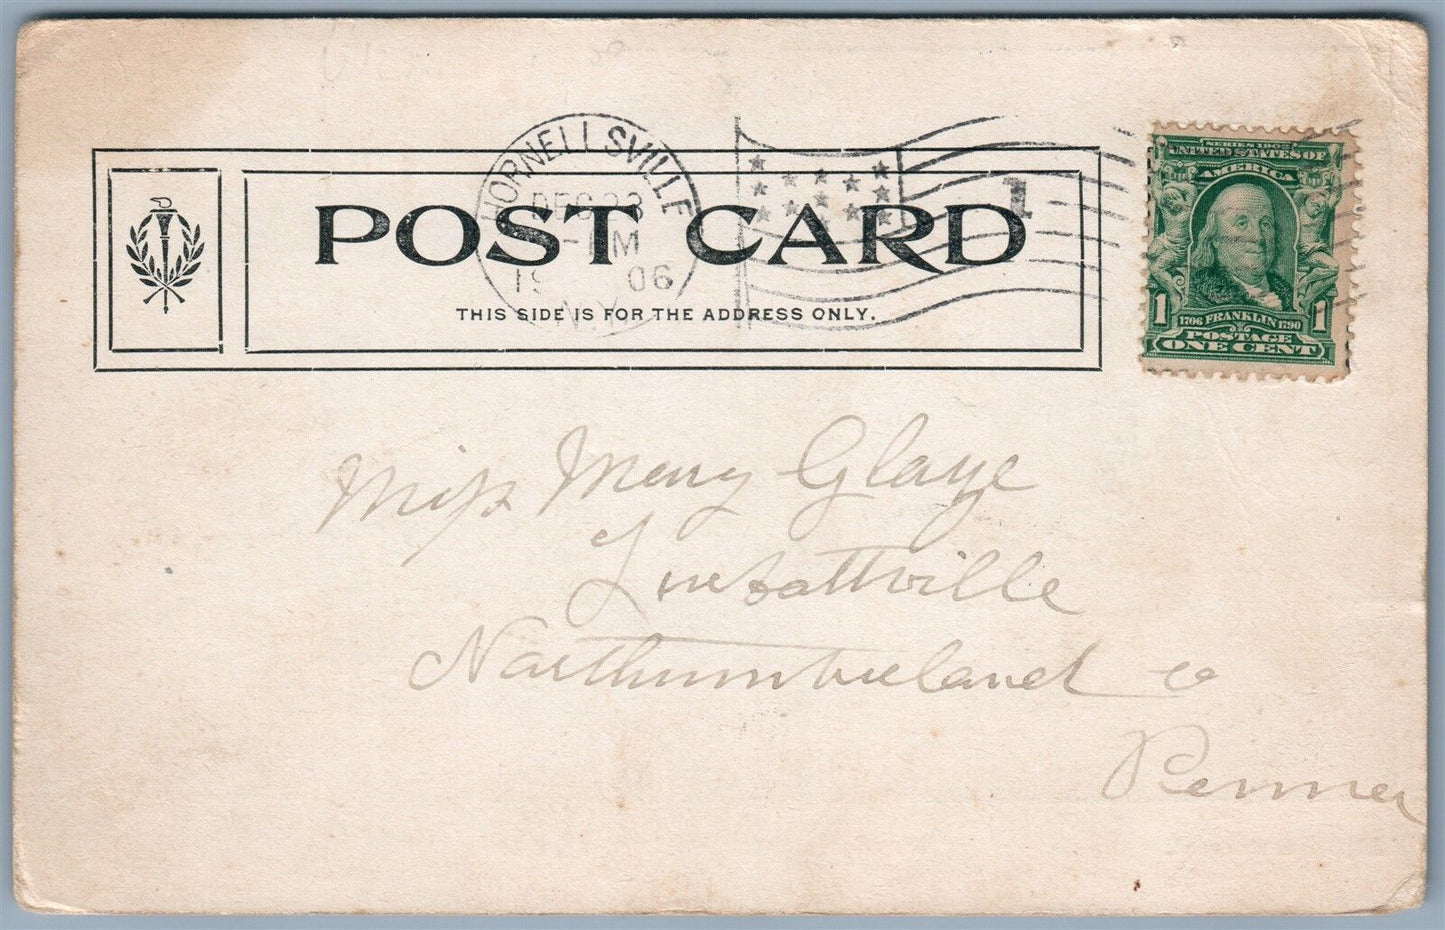 HORNELLSVILLE
DEC 23
M
19 06
N.Y.
1
POST CARD
THIS SIDE IS FOR THE ADDRESS ONLY.
SERIES 1902
UNITED STATES OF
AMERICA
1706 FRANKLIN 1790
POSTAGE
1 ONE CENT 1
Miss Mary Glaye
Northumberland Co
Penna